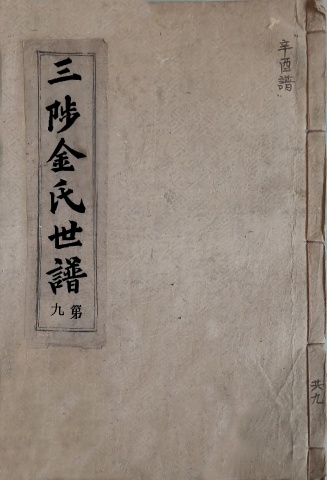 辛酉譜
共九
三陟金氏世譜
第九